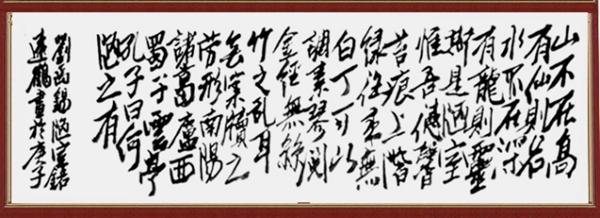 山不在高
有仙則名
水不在深
有龍則靈
斯是陋室
惟吾德馨
苔痕上階
緑往来無
白丁可以
調素琴閲
金經無絲
竹之乱耳
無案牘之
劳形南陽
諸葛廬西
蜀子雲亭
孔子曰何
陋之有
劉禹錫陋室銘
連鵬書於庚子